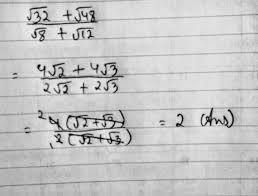 (√32 + √48) / (√8 + √12)
= (4√2 + 4√3) / (2√2 + 2√3)
= (²4(√2 + √3)) / (₁2(√2 + √3)) = 2 (Ans)